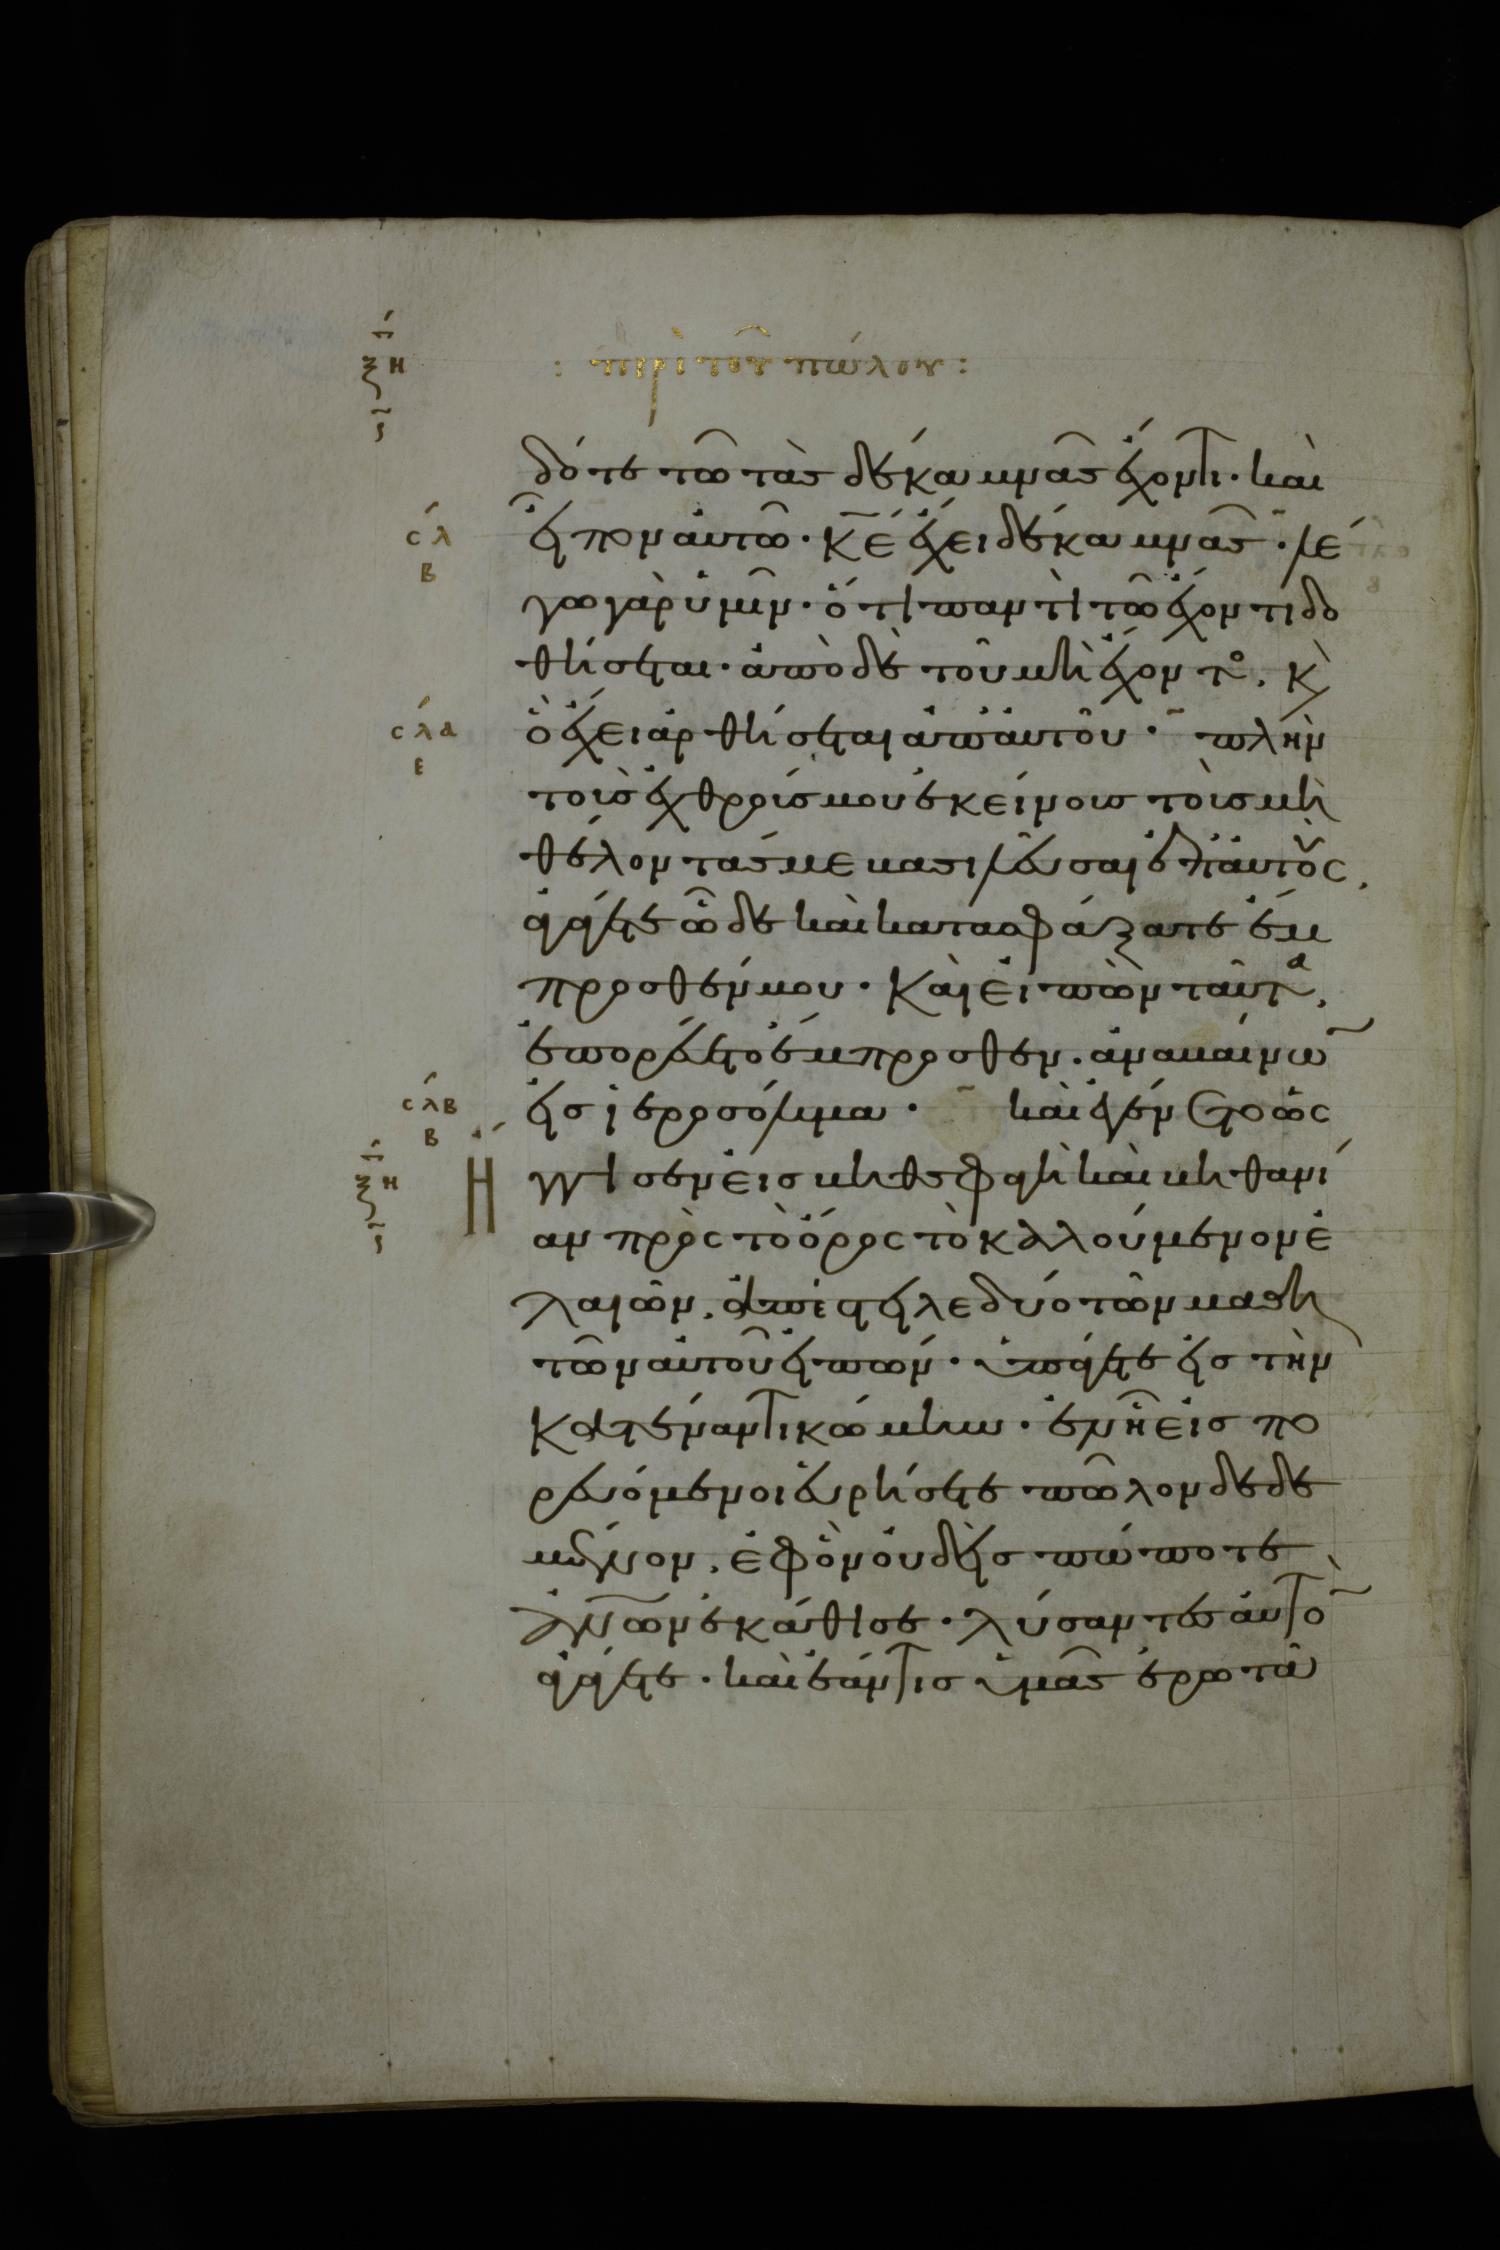 ξη
: περὶ τοῦ πώλου :
δότε τῶ τὰς δέκα μνᾶς ἔχοντι· καὶ
σλ
εἶπον αὐτῶ· κ̅ε̅ ἔχει δέκα μνᾶς· λέ
β
γω γὰρ ὑμῖν· ὅτι παντὶ τῶ ἔχοντι δο
θήσεται· ἀπὸ δὲ τοῦ μὴ ἔχοντο. κ
σλα
ὃ ἔχει ἀρθήσεται ἀπ' αὐτοῦ· πλὴν
ε
τοὺσ ἐχθρούσ μου ἐκείνουσ τοὺσ μὴ
θέλοντάς με βασιλεῦσαι ἐπ' αὐτοὺς.
ἀγάγετε ὧδε καὶ κατασφάξατε ἔμ
προσθέν μου. Καὶ εἰπὼν ταῦτα,
ἐπορεύετο ἔμπροσθεν. ἀναβαίνω
σλβ
εἰσ ἱεροσόλυμα· καὶ ἐγένετο ὡς
β
ξη
Η
γγισεν εἰσ βηθσφαγὴ καὶ βηθανί
αν πρὸς τὸ ὄρος τὸ καλούμενον ἐ
λαιῶν. ἀπέστειλε δύο τῶν μαθη
τῶν αὐτοῦ εἰπών· ὑπάγετε εἰσ τὴν
κατέναντι κώμην· ἐν ῆ εἰσπο
ρευόμενοι εὑρήσετε πῶλον δεδε
μένον. ἐφ ὃν οὐδεὶσ πώποτε
ἀν̅ω̅ν ἐκάθισε· λύσαντεσ αὐτὸ
ἀγάγετε· καὶ ἐάν τισ ὑμᾶς ἐρωτᾶ